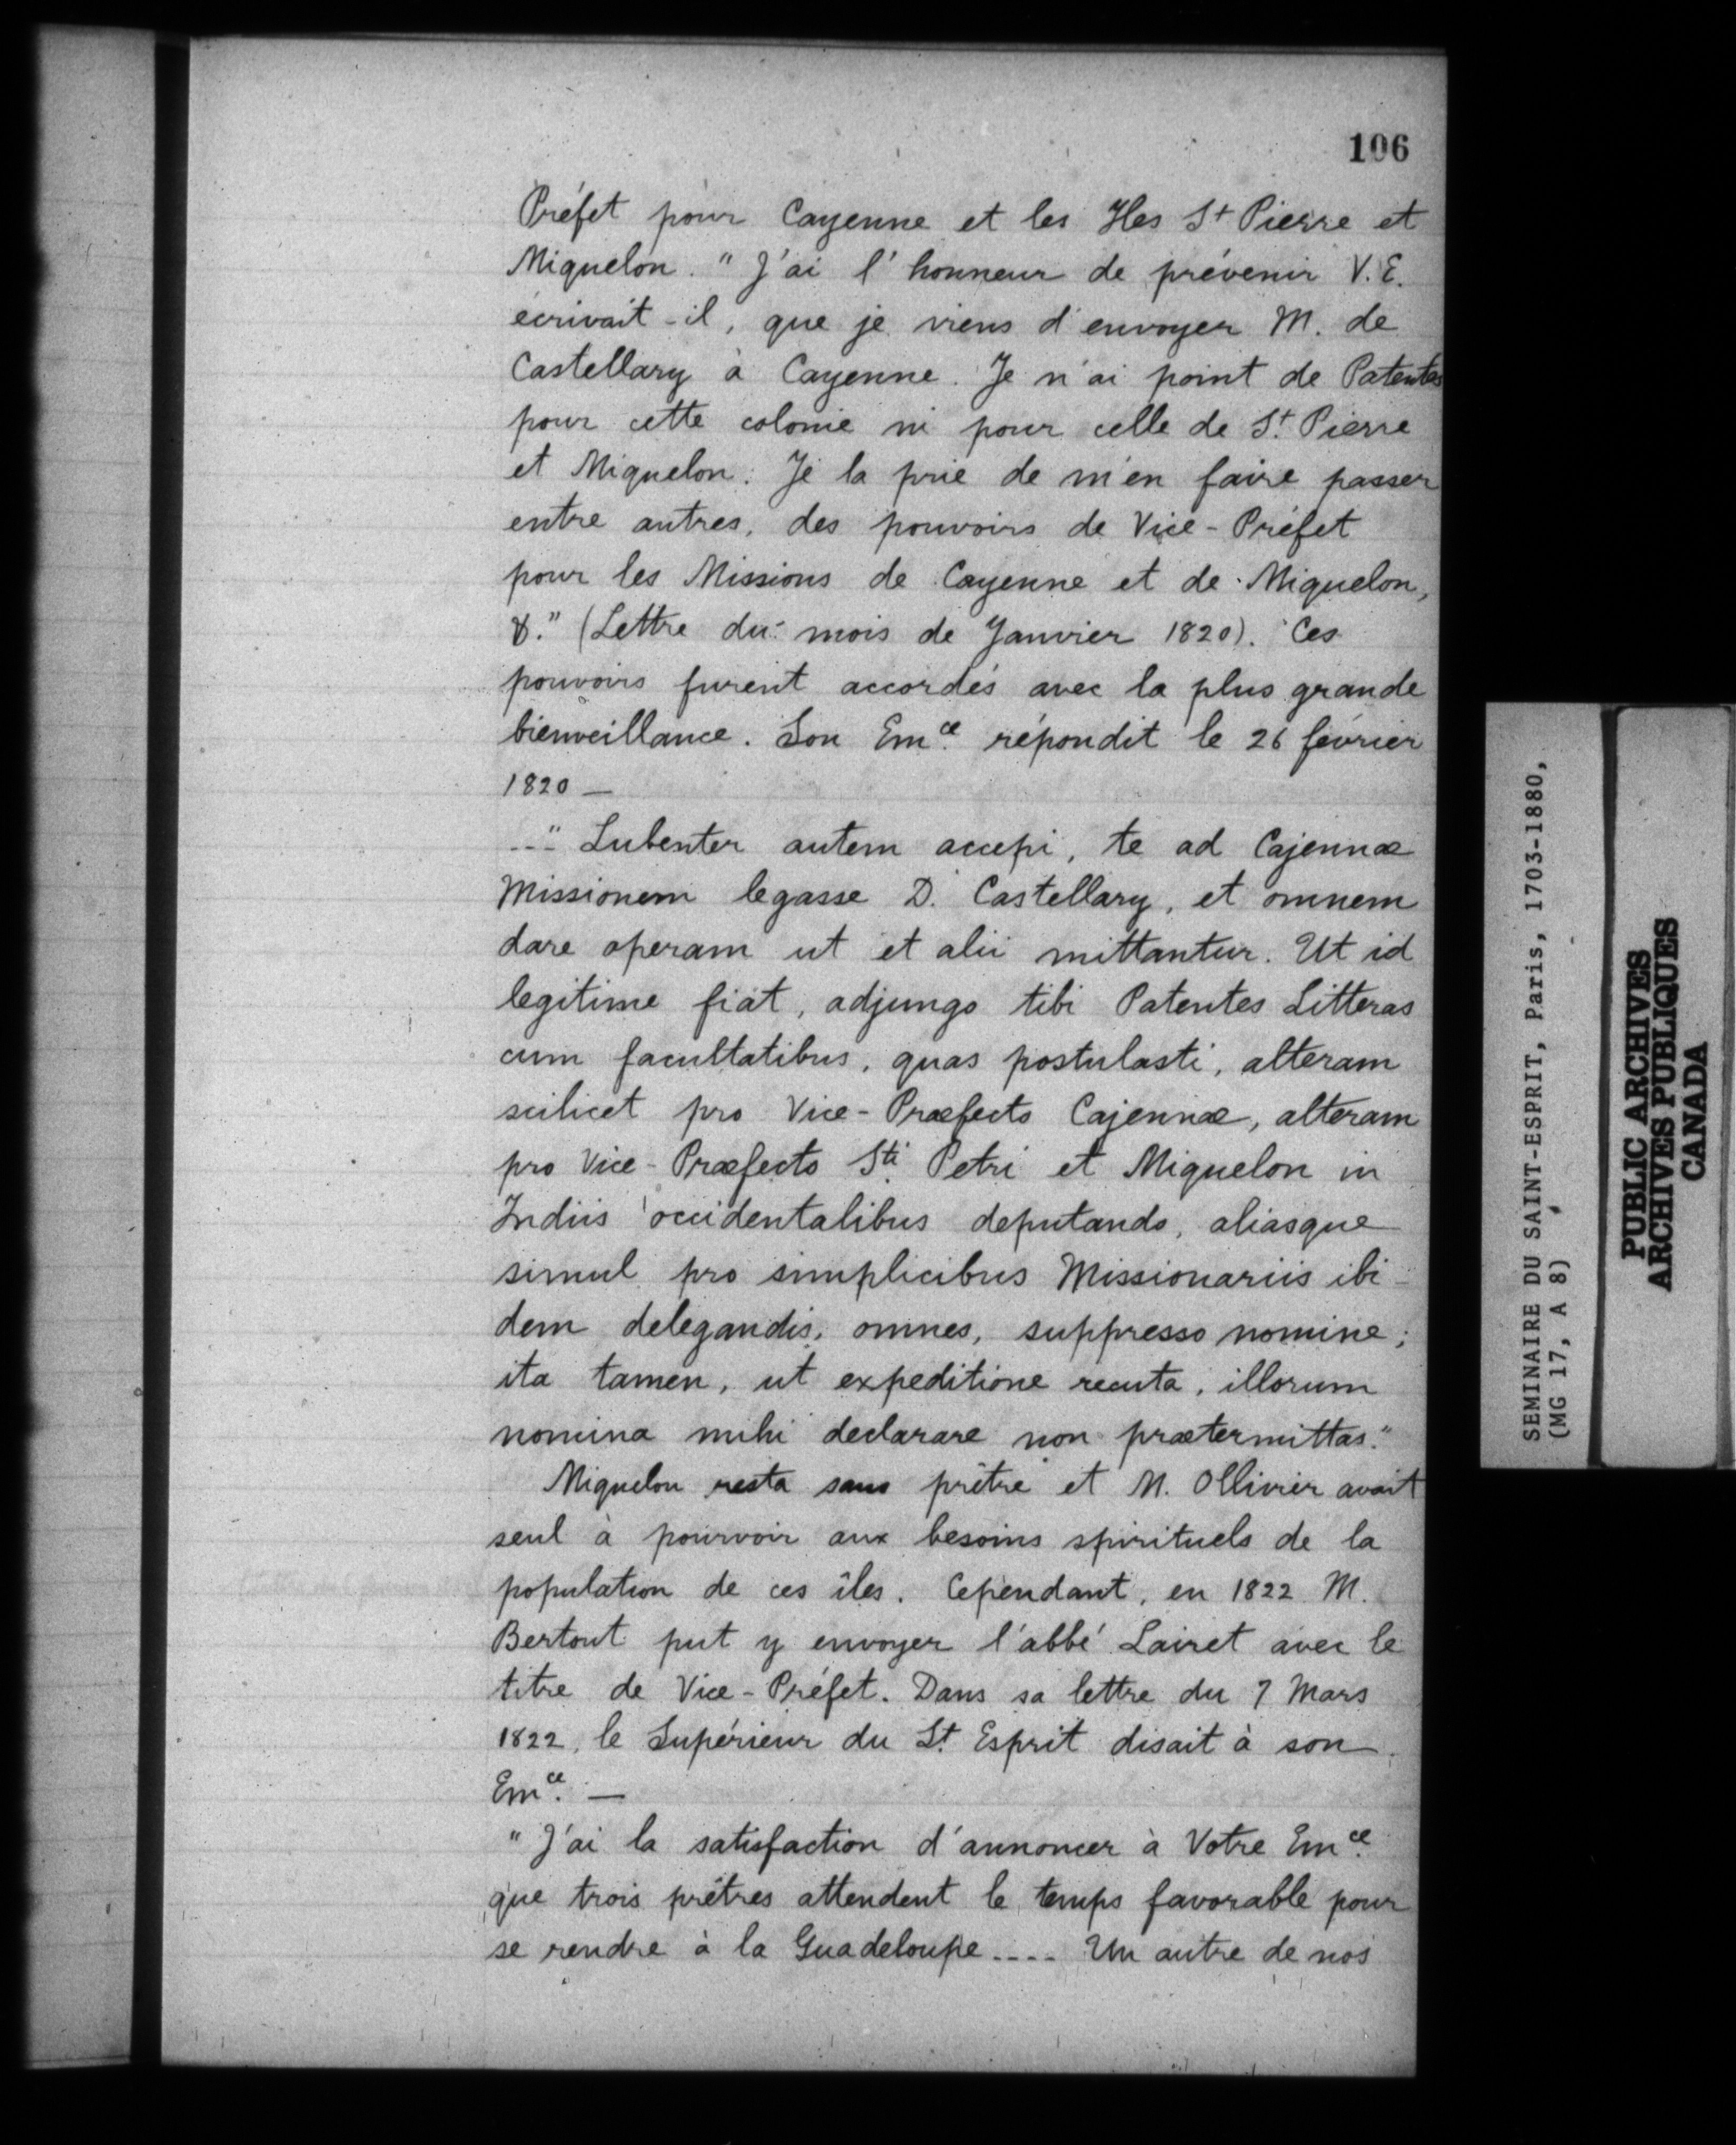 106
Préfet pour Cayenne et les Iles St Pierre et
Miquelon. "J'ai l'honneur de prévenir V. E.
écrivait-il, que je viens d'envoyer M. de
Castellary à Cayenne. Je n'ai point de Patentes
pour cette colonie ni pour celle de St. Pierre
et Miquelon. Je la prie de m'en faire passer
entre autres, des pouvoirs de Vice-Préfet
pour les Missions de Cayenne et de Miquelon,
&." (Lettre du mois de Janvier 1820). Ces
pouvoirs furent accordés avec la plus grande
bienveillance. Son Emce. répondit le 26 février
1820 —
--- "Lubenter autem accepi, te ad Cajennæ
Missionem legasse D. Castellary, et omnem
dare operam ut et alii mittantur. Ut id
legitime fiat, adjungo tibi Patentes Litteras
cum facultatibus, quas postulasti, alteram
scilicet pro Vice-Præfecto Cajennæ, alteram
pro Vice-Præfecto Sti. Petri et Miquelon in
Indiis occidentalibus deputando, aliasque
simul pro simplicibus Missionariis ibi-
dem delegandis, omnes, suppresso nomine;
ita tamen, ut expeditione secuta, illorum
nomina mihi declarare non prætermittas."
Miquelon resta sans prêtre et M. Ollivier avait
seul à pourvoir aux besoins spirituels de la
population de ces îles. Cependant, en 1822 M.
Bertout put y envoyer l'abbé Lairet avec le
titre de Vice-Préfet. Dans sa lettre du 7 Mars
1822, le Supérieur du St. Esprit disait à son
Emce. —
"J'ai la satisfaction d'annoncer à Votre Emce.
que trois prêtres attendent le temps favorable pour
se rendre à la Guadeloupe .... Un autre de nos
SEMINAIRE DU SAINT-ESPRIT, Paris, 1703-1880,
(MG 17, A 8)
PUBLIC ARCHIVES
ARCHIVES PUBLIQUES
CANADA